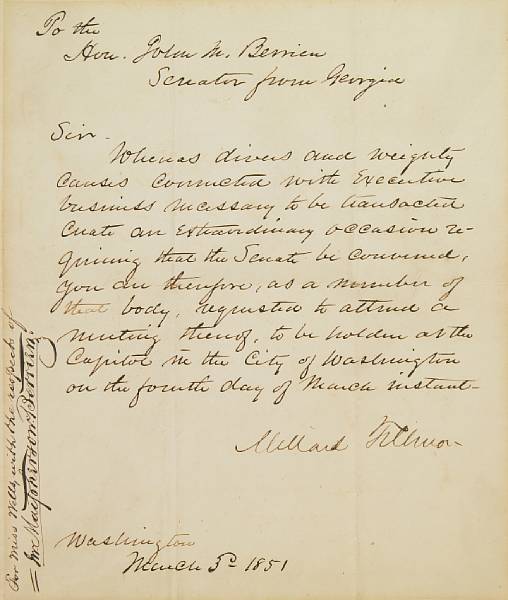 To the
Hon. John M. Berrien
Senator from Georgia
Sir.
Whereas divers and weighty
causes connected with Executive
business necessary to be transacted
create an extraordinary occasion re-
quiring that the Senate be convened,
you are therefore, as a member of
that body, requested to attend a
meeting thereof, to be holden at the
Capitol in the City of Washington
on the fourth day of March instant-
Millard Fillmore
Washington
March 3d 1851
For Miss Welly with the respects of
Berrien.